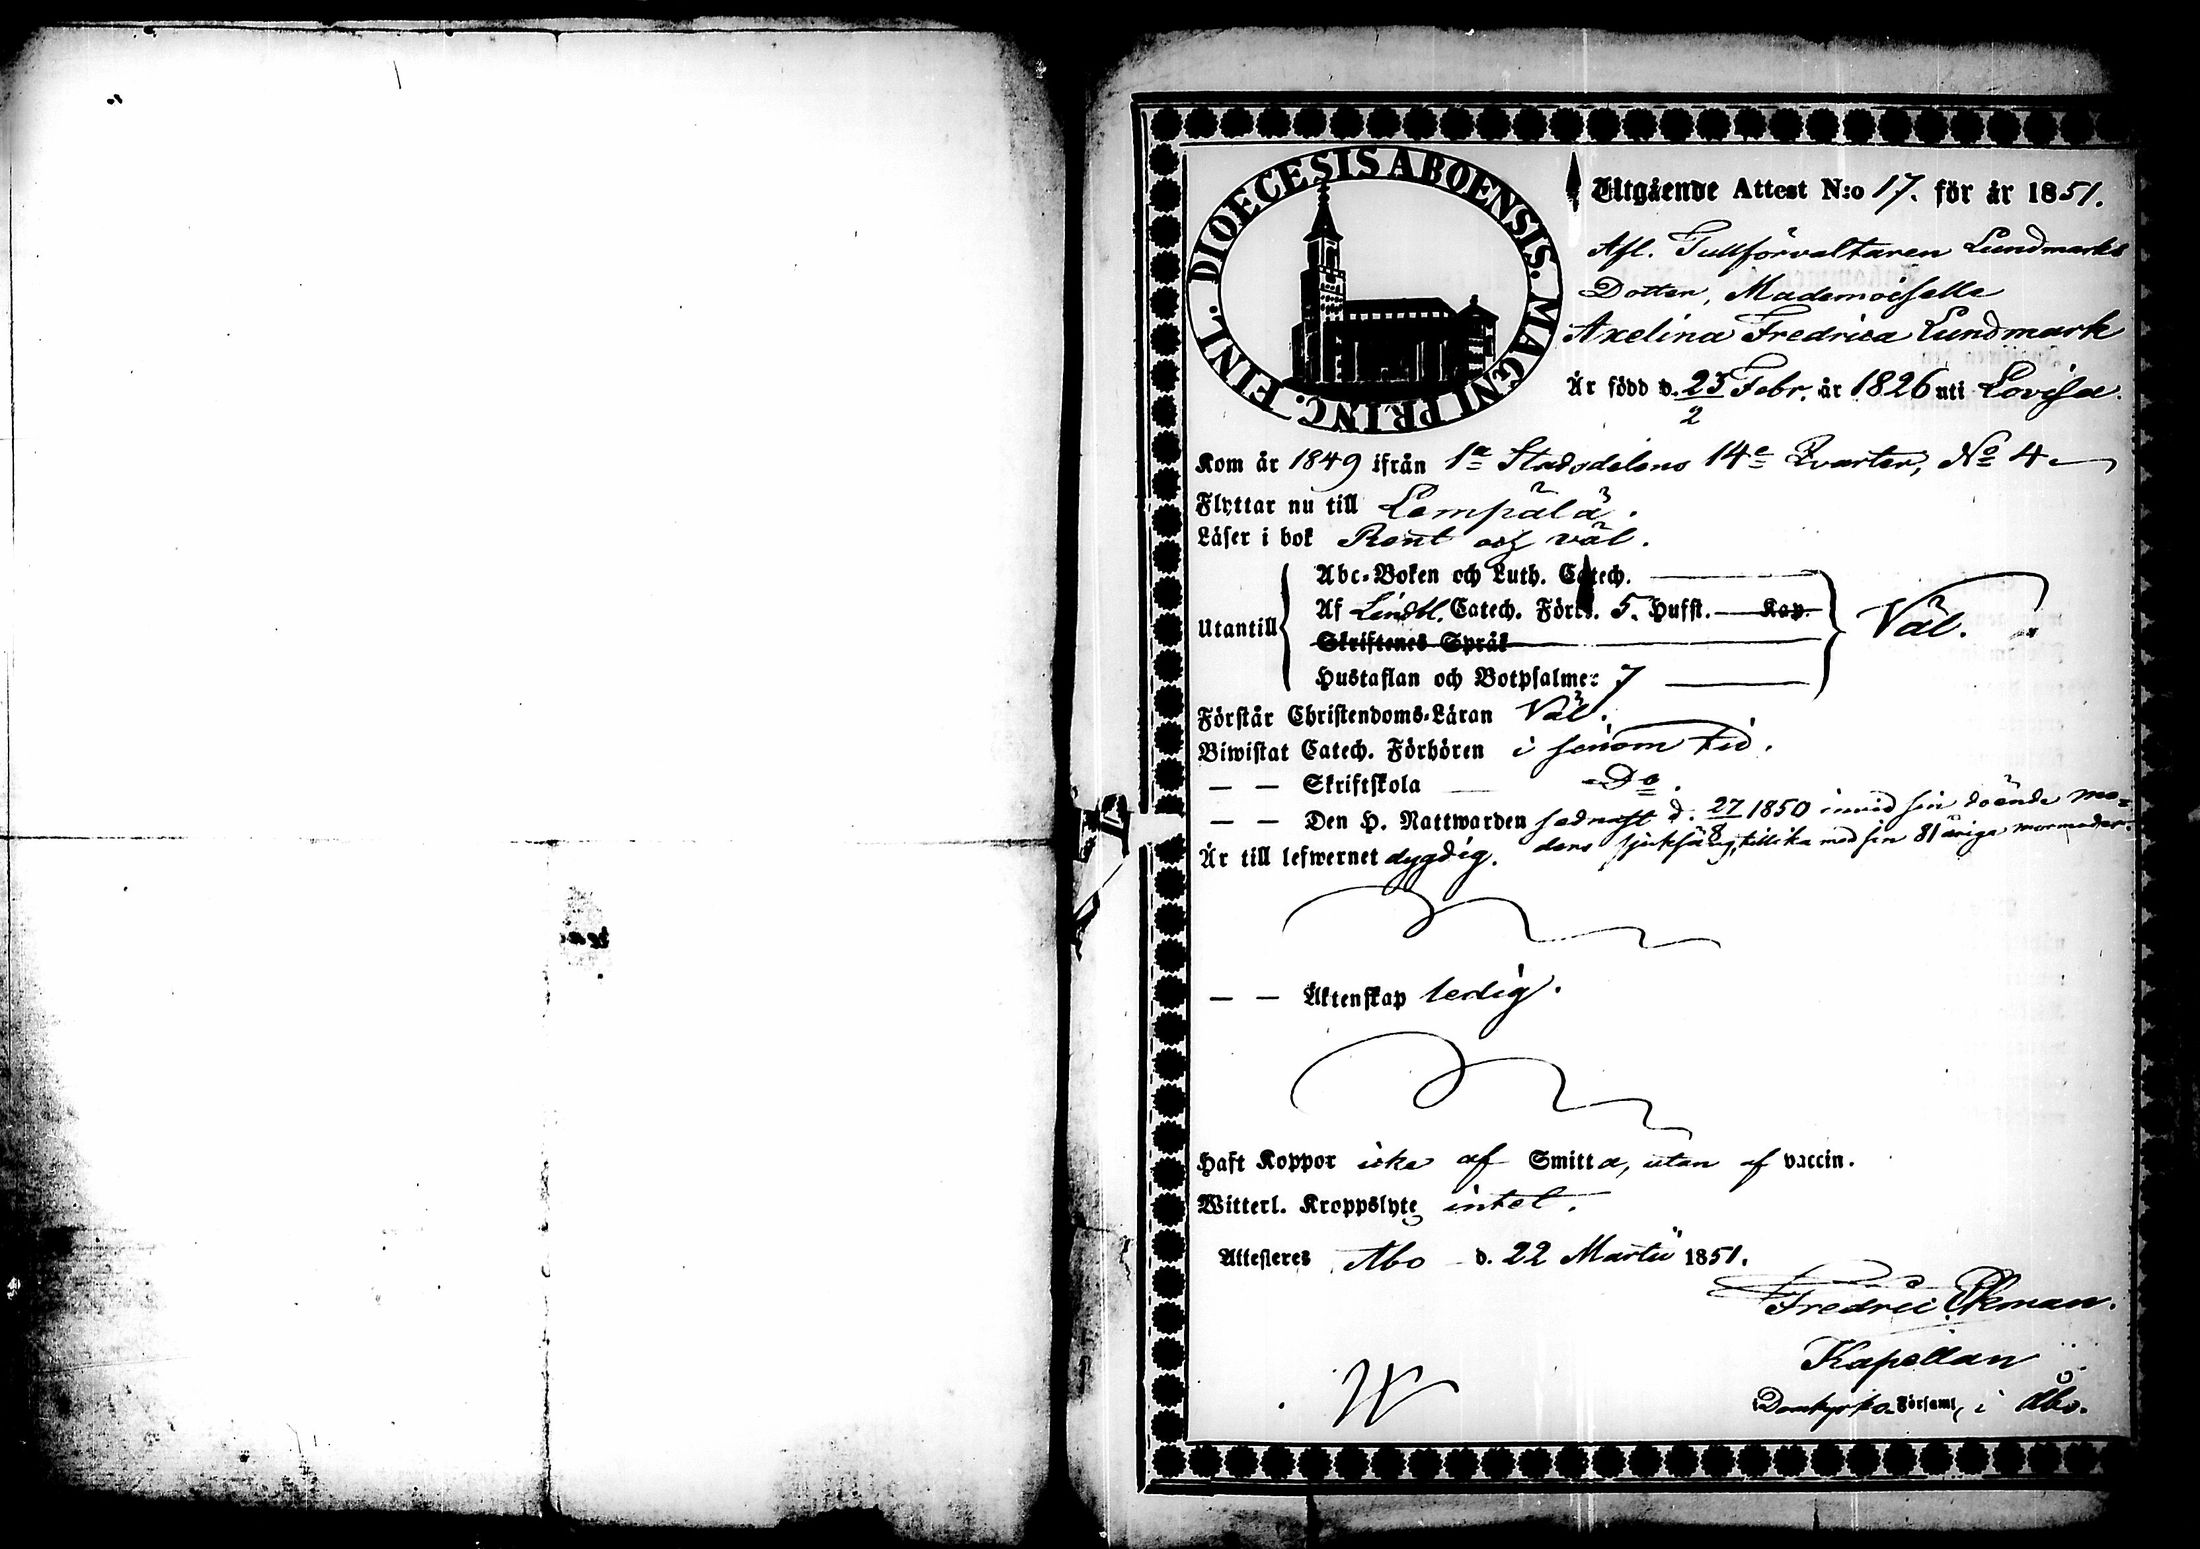 DIOECESIS ABOENSIS. MAGNI PRINC. FINL.
Utgående Attest N:o 17. för år 1851.
Afl. Tullförvaltaren Lundmarks
Dotter, Mademoiselle
Axelina Fredrica Lundmark
Är född d. 23/2 Febr. år 1826 uti Lovisa.
Kom år 1849 ifrån 1a Stadsdelens 14e Qvarter, No 4
Flyttar nu till Lempälä.
Läser i bok Rent och väl.
Utantill
Abc-Boken och Luth. Catech.
Af Lindbl. Catech. Först. 5. Hufst. Kap.
Skriftenes Språk
Hustaflan och Botpsalmer 7
Väl.
Förstår Christendoms-Läran Väl.
Biwistat Catech. Förhören i sinom tid.
— — Skriftskola Do.
— — Den H. Nattwarden sednast d. 27/8 1850 invid sin döende mo=
ders sjuksäng, tillika med sin 81 åriga mormoder.
Är till lefwernet dygdig.
— — Äktenskap ledig.
Haft Koppor icke af Smitta, utan af vaccin.
Witterl. Kroppslyte intet.
Attesteres Åbo d. 22 Martii 1851.
Fredric Ekman.
Kapellan
Domkyrko Församl. i Åbo.